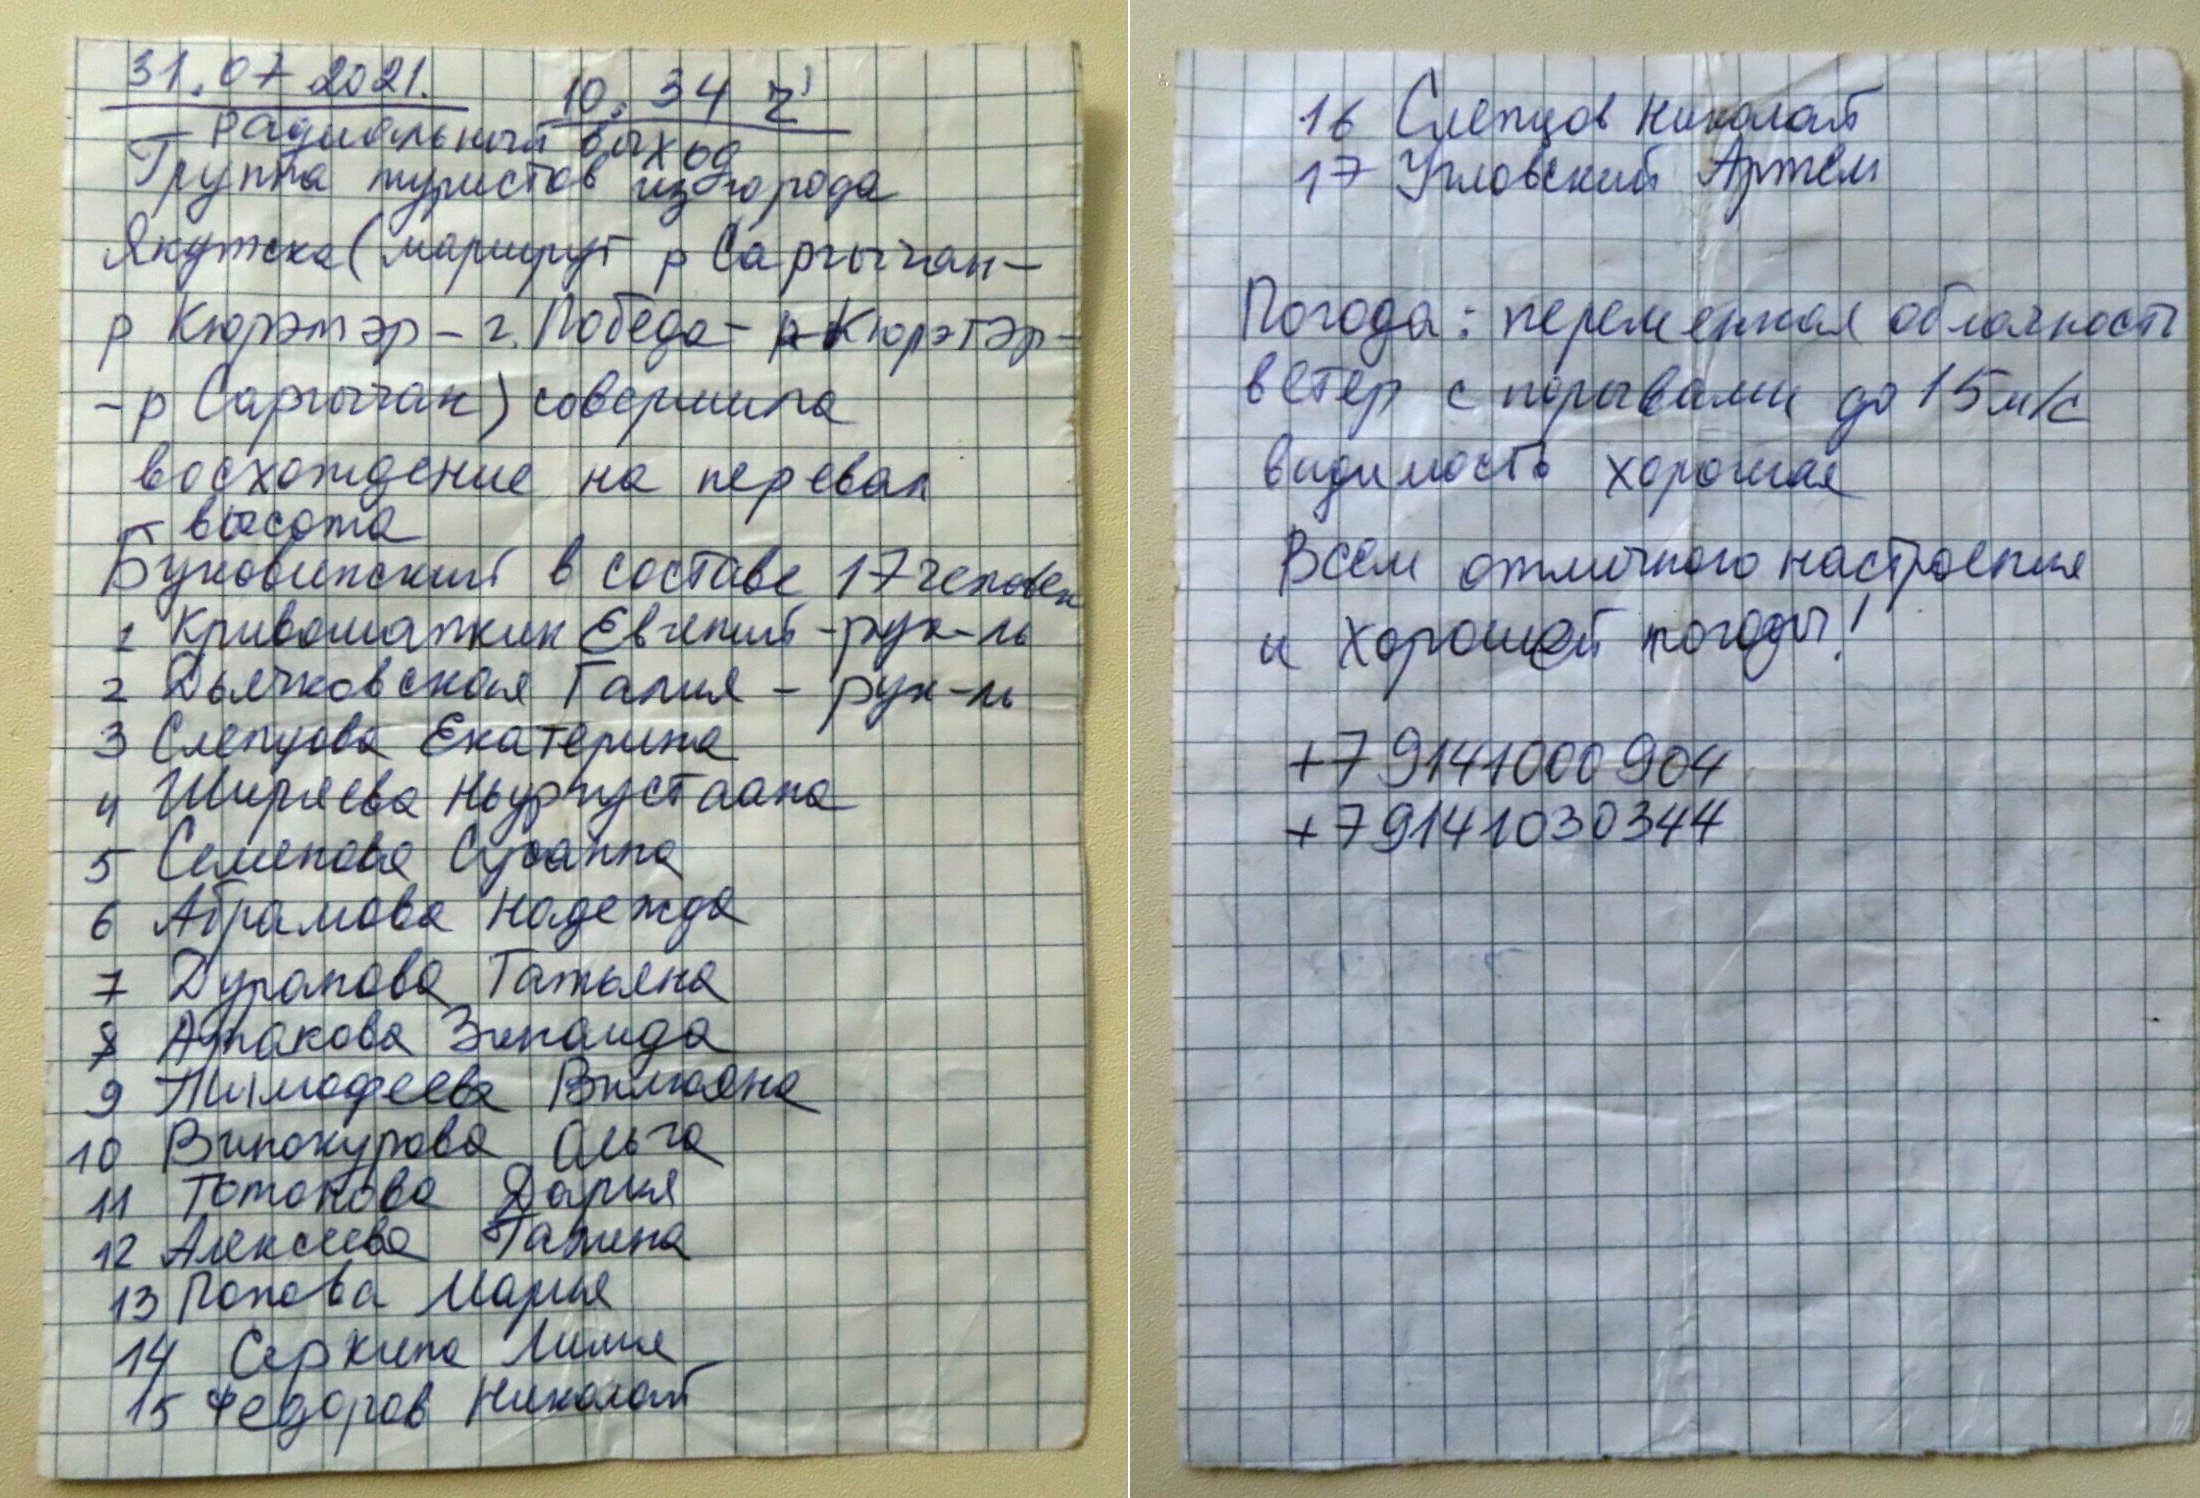 31.07 2021. 10.34 ч
Радиальный выход
Группа туристов из города
Якутска (маршрут р Саргычан-
р Кюрэтэр - г. Победа - р Кюрэтэр -
- р Саргычан) совершила
восхождение на перевал
высота
Буковинский в составе 17 человек
1 Кривошапкин Евгений - рук-ль
2 Дьячковская Галия - рук-ль
3 Слепцова Екатерина
4 Ширяева Ньургустаана
5 Семенова Сусанна
6 Абрамова Надежда
7 Дуранова Татьяна
8 Аржакова Зинаида
9 Тимофеева Вилюяна
10 Винокурова Ольга
11 Готовова Дария
12 Алексеева Галина
13 Попова Мария
14 Серкина Лилия
15 Федоров Николай
16 Слепцов Николай
17 Угловский Артём
Погода: переменная облачность
ветер с порывами до 15 м/с
видимость хорошая
Всем отличного настроения
и хорошей погоды!
+7 9141000904
+7 9141030344